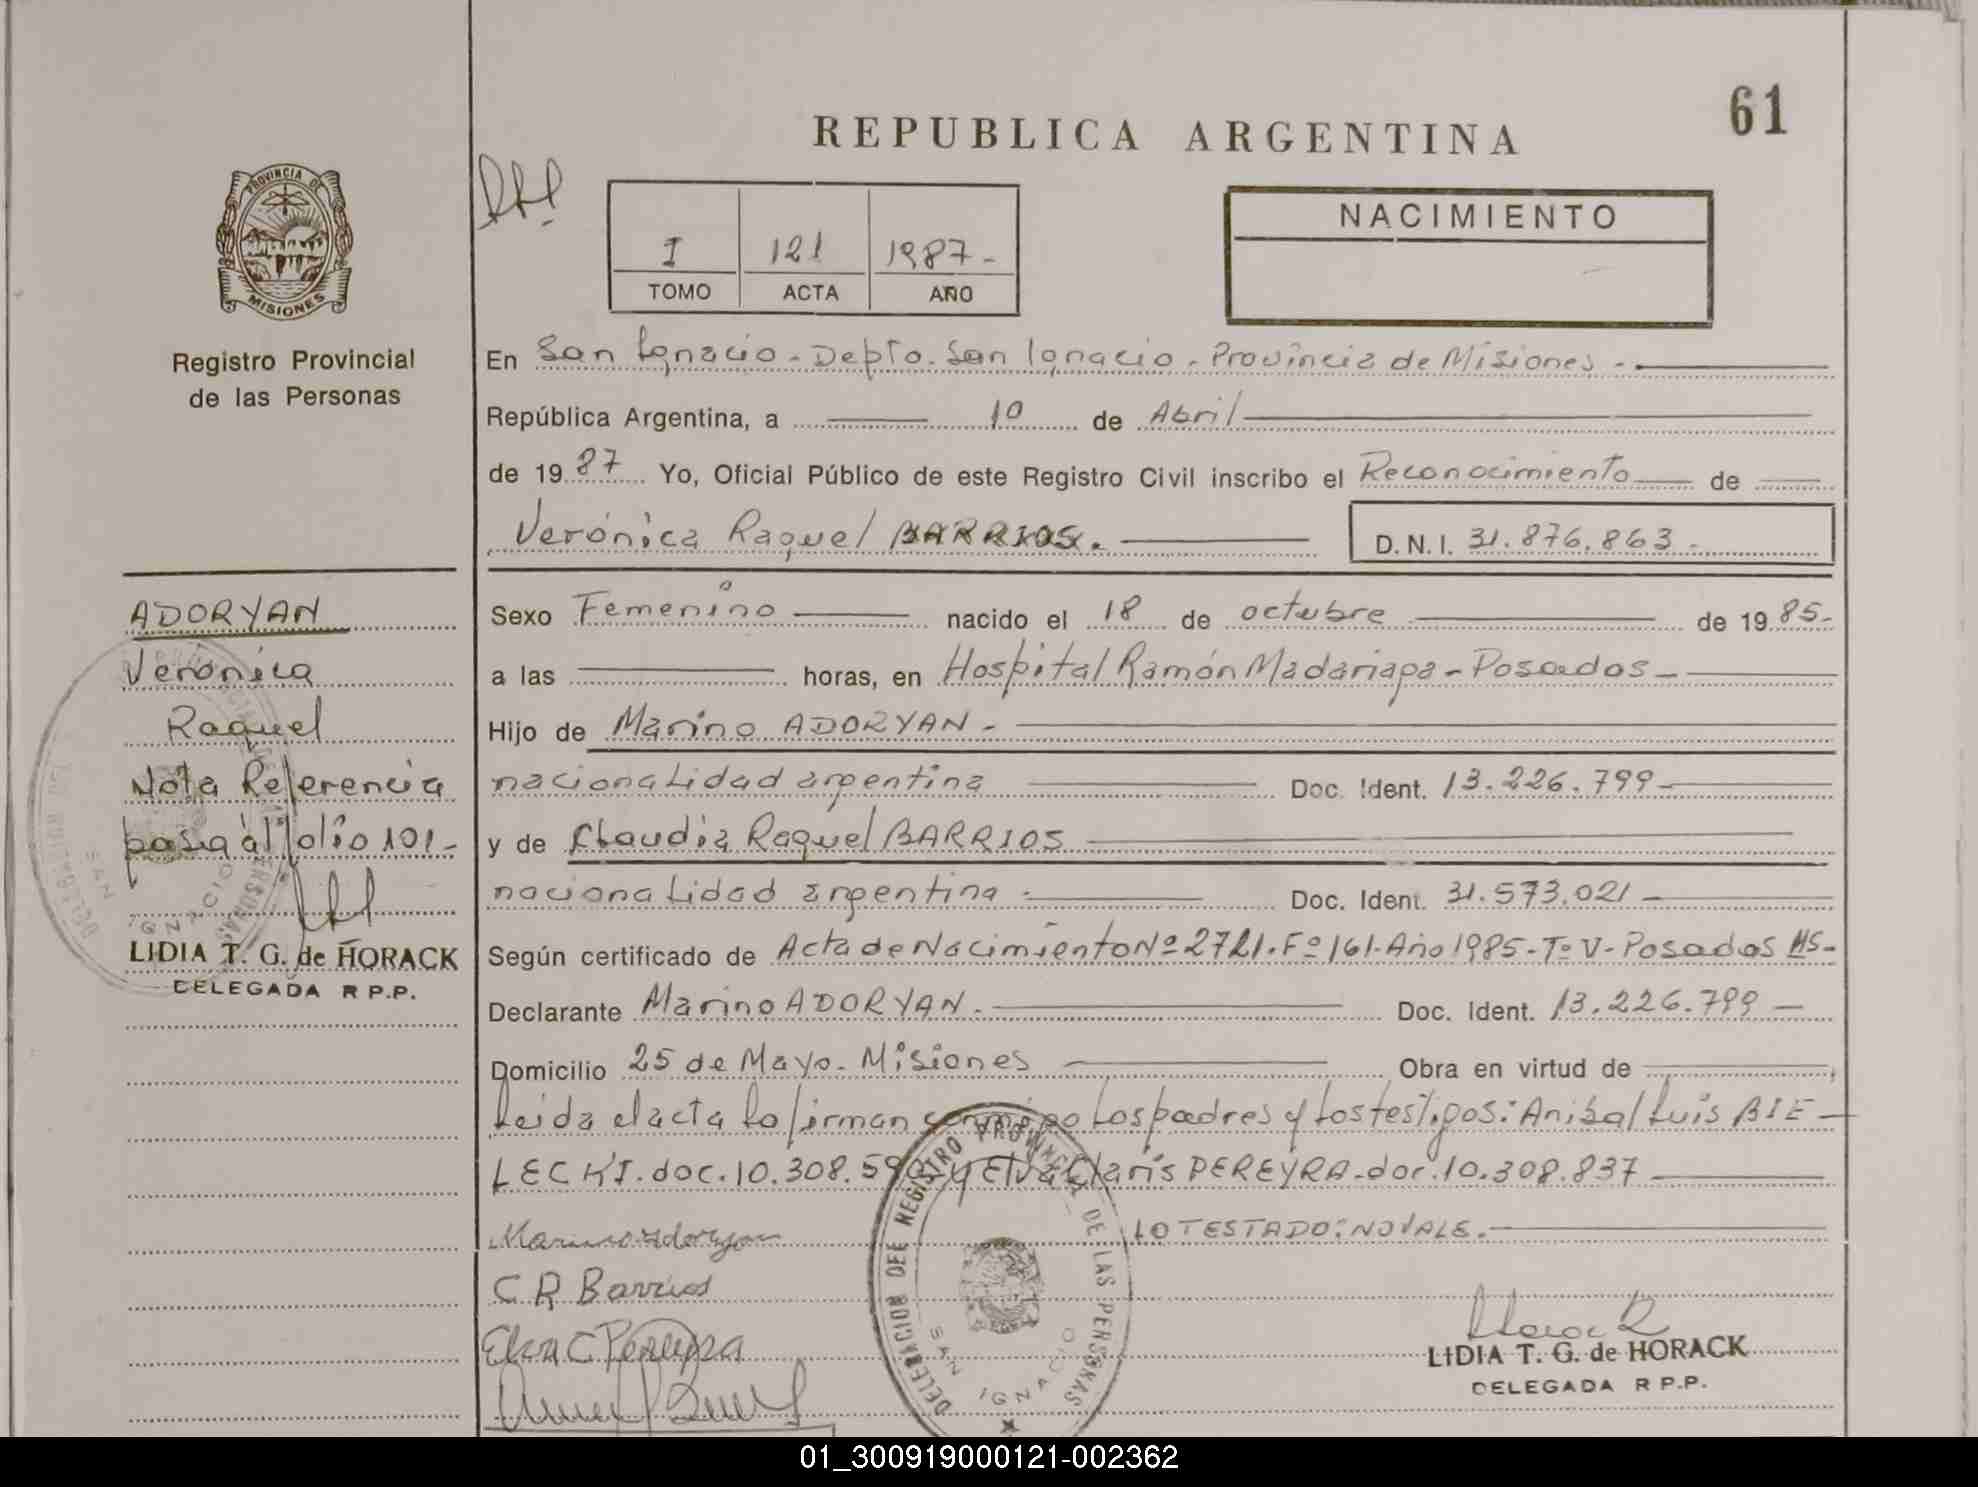 61
REPUBLICA ARGENTINA
PROVINCIA DE
MISIONES
Registro Provincial
de las Personas
I 121 1987-
TOMO ACTA AÑO
NACIMIENTO
En San Ignacio - Depto. San Ignacio - Provincia de Misiones -
República Argentina, a 10 de Abril
de 1987 Yo, Oficial Público de este Registro Civil inscribo el Reconocimiento de
Verónica Raquel BARRIOS. D.N.I. 31.876.863 -
ADORYAN
Verónica
Raquel
Nota Referencia
pasa al folio 101-
LIDIA T. G. de HORACK
DELEGADA R P.P.
Sexo Femenino nacido el 18 de octubre de 1985-
a las horas, en Hospital Ramón Madariaga - Posadas -
Hijo de Marino ADORYAN -
nacionalidad argentina Doc. Ident. 13.226.799-
y de Claudia Raquel BARRIOS
nacionalidad argentina - Doc. Ident. 31.573.021-
Según certificado de Acta de Nacimiento Nº 2721. Fº 161- Año 1985- Tº V- Posadas MS-
Declarante Marino ADORYAN. Doc. Ident. 13.226.799
Domicilio 25 de Mayo. Misiones Obra en virtud de
Leida el acta la firman conmigo los padres y los testigos: Anibal Luis BIE-
LECKI. doc. 10.308.59 y Elva Claris PEREYRA. doc. 10.308.837
LO TESTADO: NO VALE.
Marino Adoryan
C R Barrios
Elva C Pereyra
DELEGACION DEL REGISTRO PROVINCIAL DE LAS PERSONAS
SAN IGNACIO
LIDIA T. G. de HORACK
DELEGADA R P.P.
01_300919000121-002362